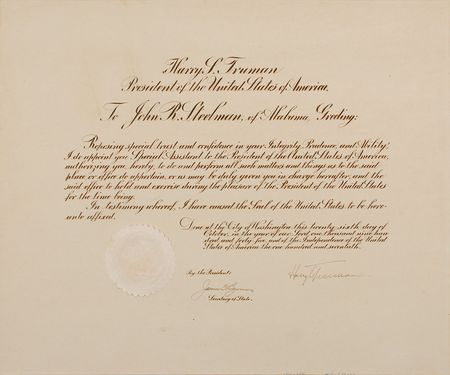 Harry S. Truman
President of the United States of America.
To John R. Steelman, of Alabama, Greeting:
Reposing special trust and confidence in your Integrity, Prudence, and Ability;
I do appoint you Special Assistant to the President of the United States of America,
authorizing you, hereby, to do and perform all such matters and things as to the said
place or office do appertain, or as may be duly given you in charge hereafter, and the
said office to hold and exercise during the pleasure of the President of the United States
for the time being.
In testimony whereof, I have caused the Seal of the United States to be here-
unto affixed.
Done at the City of Washington this twenty sixth day of
October, in the year of our Lord one thousand nine hun-
dred and forty five and of the Independence of the United
States of America the one hundred and seventieth.
By the President:
Harry Truman
James F. Byrnes
Secretary of State.